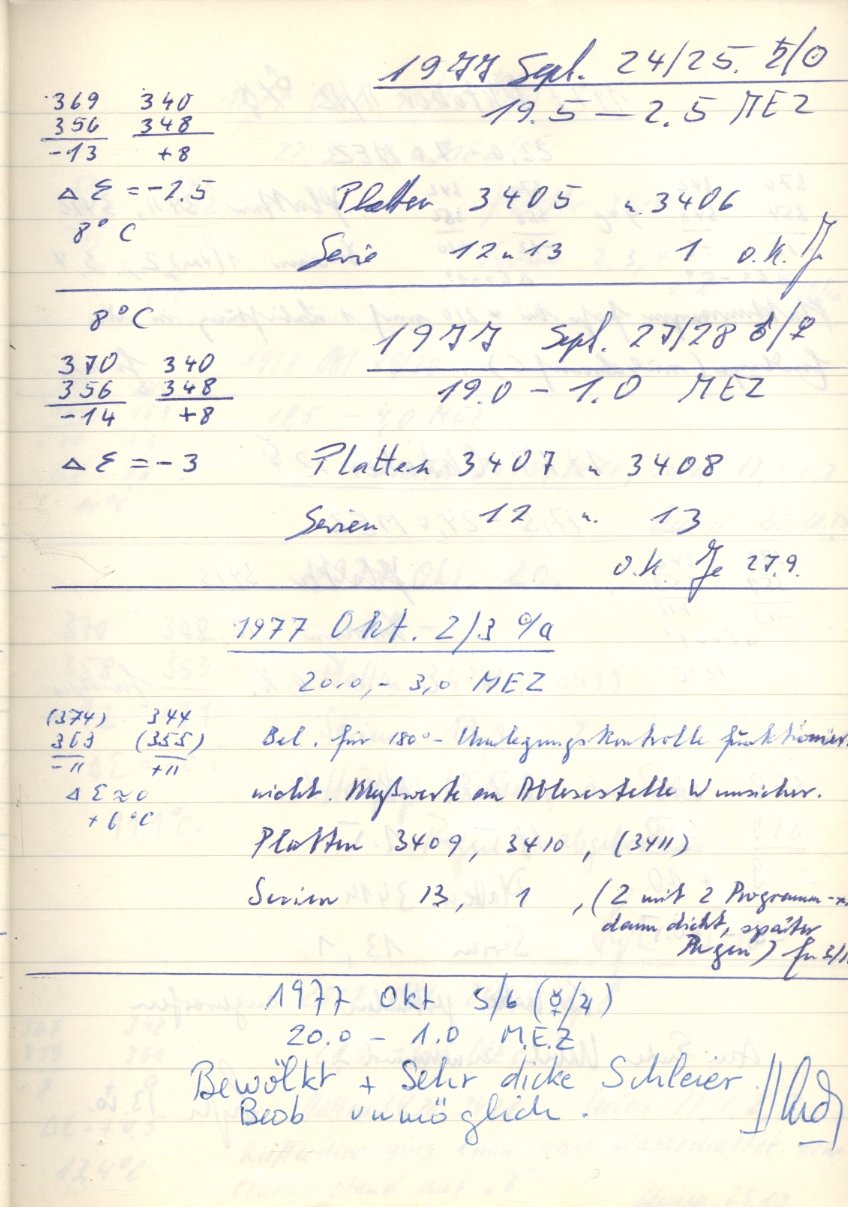 1977 Sept. 24/25. ♄/☉
19.5 — 2.5 MEZ
369 340
356 348
-13 +8
Δ ε = -2.5
8° C
Platten 3405 u. 3406
Serie 12 u 13 1 o.k.
8° C
1977 Sept. 27/28 ♂/☿
19.0 – 1.0 MEZ
370 340
356 348
-14 +8
Δ ε = - 3
Platten 3407 u 3408
Serien 12 u. 13
o.k. Je 27.9.
1977 Okt. 2/3 ☉/☾
20.0, - 3,0 MEZ
(374) 344
363 (355)
-11 +11
Δ ε ≈ 0
+ 6 °C
Bel. für 180°- Umlegungskontrolle funktioniert
nicht. Meßwerte an Ablesestelle W unsicher.
Platten 3409, 3410, (3411)
Serien 13, 1, (2 mit 2 Programm-
dann dicht, später
Regen)
1977 Okt 5/6 (☿/♃)
20.0 - 1.0 M.E.Z
Bewölkt + Sehr dicke Schleier.
Beob unmöglich.